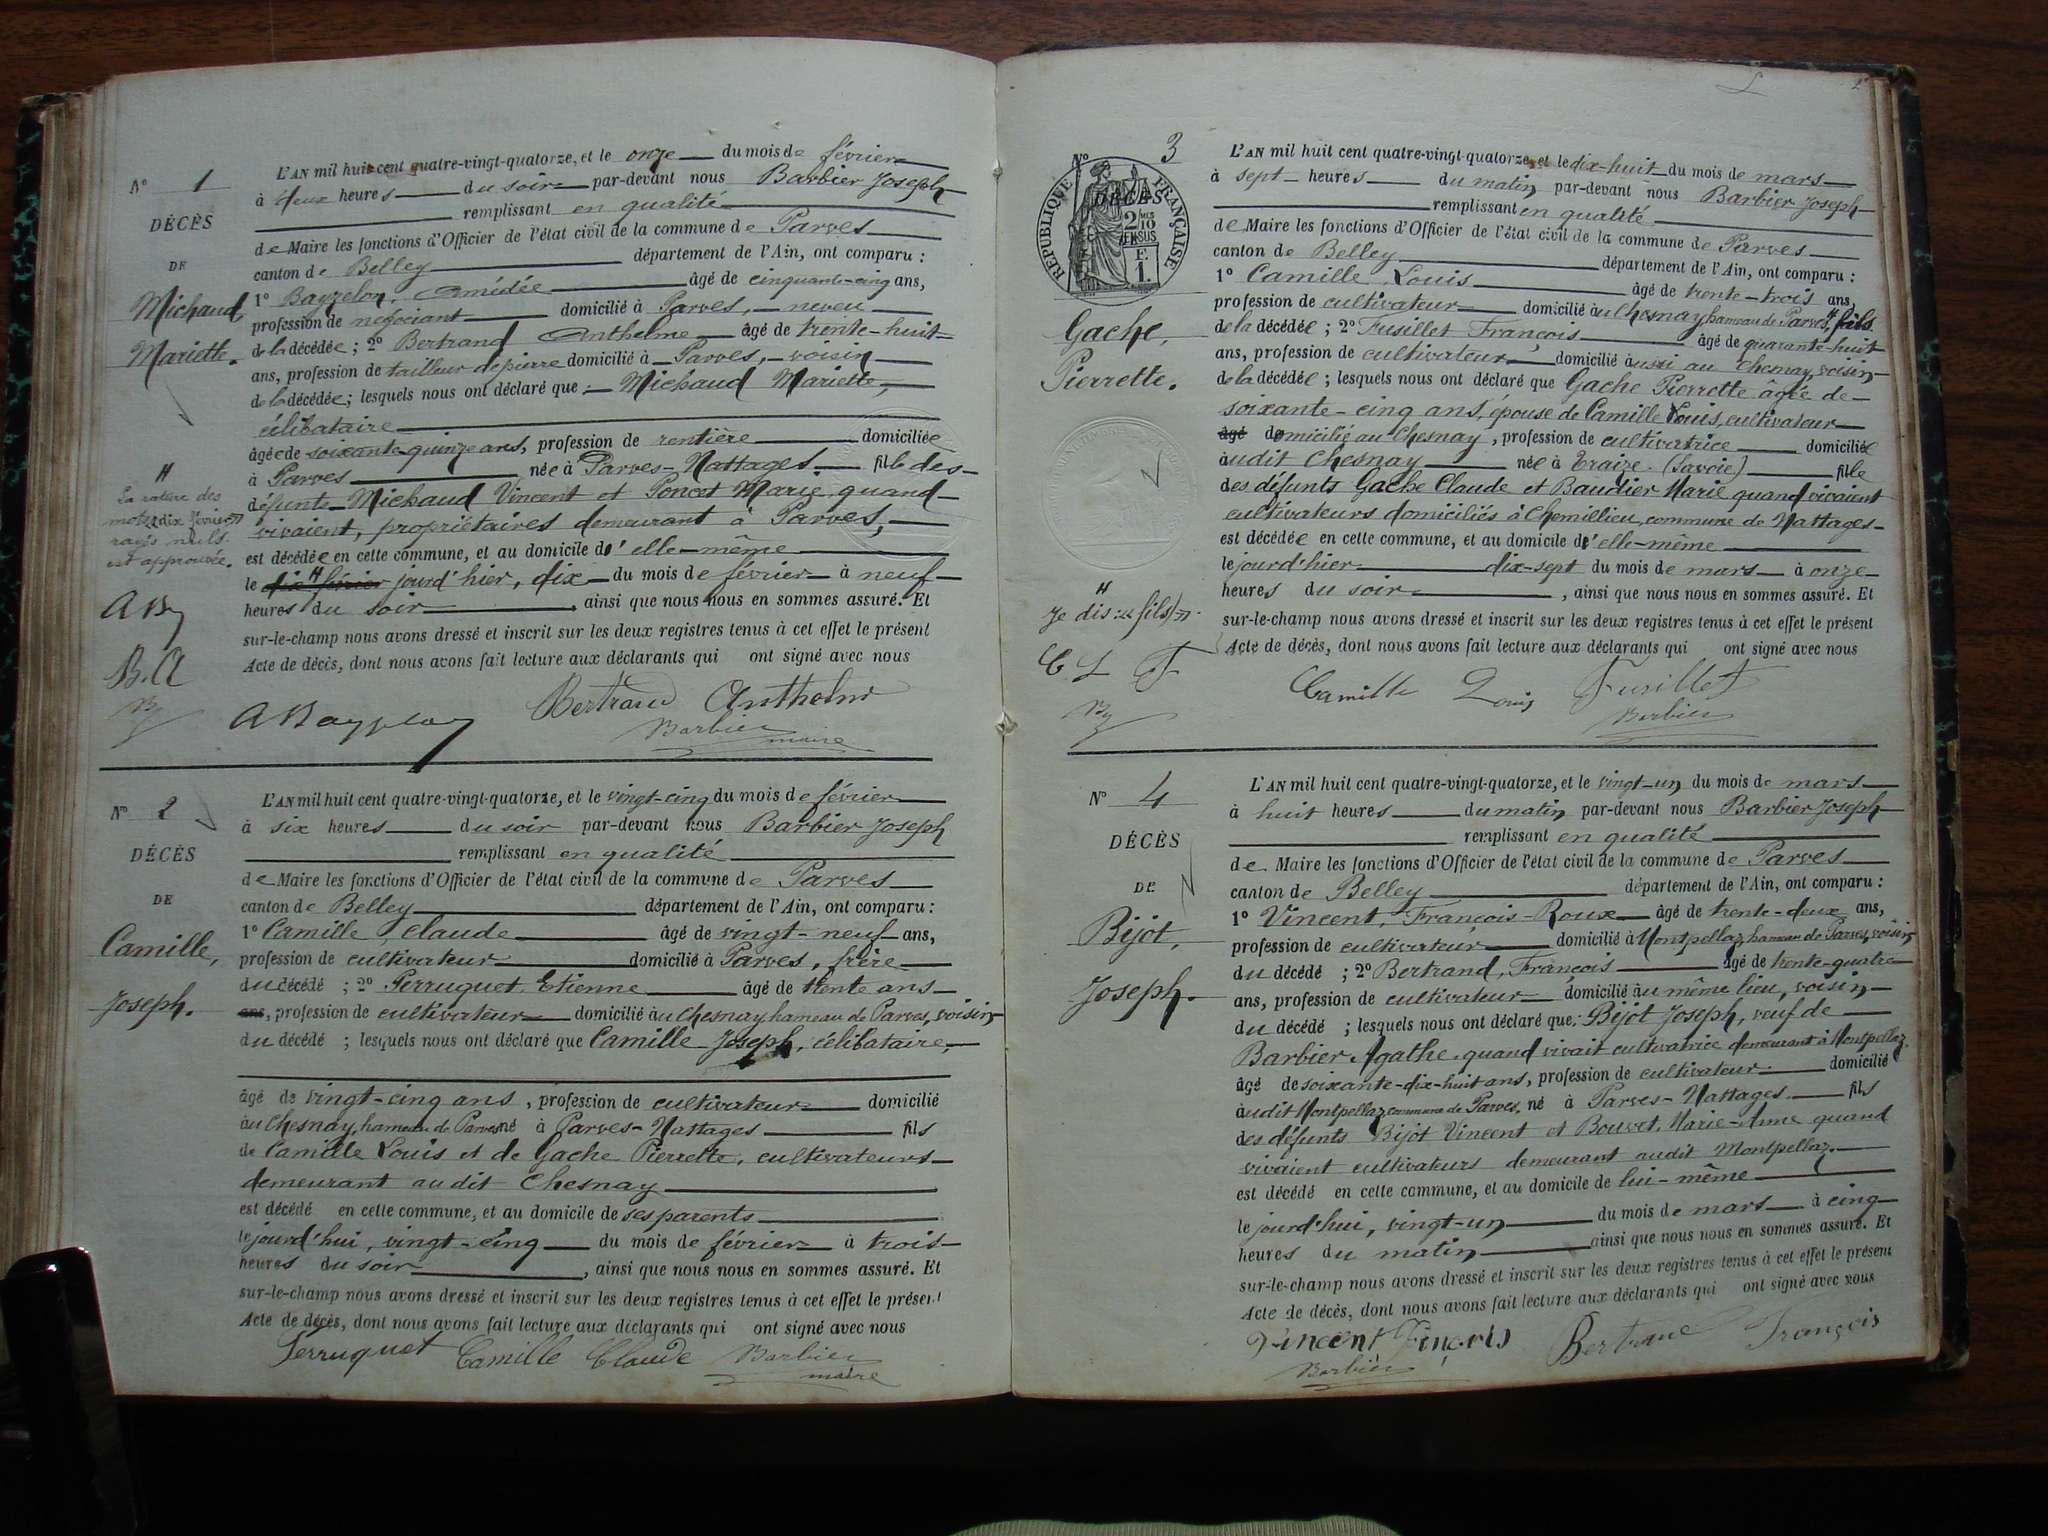 N° 1
DÉCÈS
DE
Michaud
Mariette.
H
La rature des
mots "dix février"
rayés nuls
est approuvée.
AB
B. A
By
L'AN mil huit cent quatre-vingt-quatorze, et le onze du mois de février
à deux heures du soir par-devant nous Barbier Joseph
remplissant en qualité
de Maire les fonctions d'Officier de l'état civil de la commune de Parves
canton de Belley département de l'Ain, ont comparu :
1° Bayzelon, Amédée âgé de cinquante-cinq ans,
profession de négociant domicilié à Parves, neveu
de la décédée ; 2° Bertrand Anthelme âgé de trente-huit
ans, profession de tailleur de pierre domicilié à Parves, voisin
de la décédée ; lesquels nous ont déclaré que Michaud Mariette,
célibataire
âgée de soixante-quinze ans, profession de rentière domiciliée
à Parves née à Parves-Nattages. fille des
défunts Michaud Vincent et Poncet Marie quand
vivaient, propriétaires demeurant à Parves,
est décédée en cette commune, et au domicile d'elle-même
le dix février H jourd'hier, dix du mois de février à neuf
heures du soir, ainsi que nous nous en sommes assuré. Et
sur-le-champ nous avons dressé et inscrit sur les deux registres tenus à cet effet le présent
Acte de décès, dont nous avons fait lecture aux déclarants qui ont signé avec nous
ABayzelon Bertrand Anthelme
Barbier
maire
N° 2
DÉCÈS
DE
Camille,
Joseph.
L'AN mil huit cent quatre-vingt-quatorze, et le vingt-cinq du mois de février
à six heures du soir par-devant nous Barbier Joseph
remplissant en qualité
de Maire les fonctions d'Officier de l'état civil de la commune de Parves
canton de Belley département de l'Ain, ont comparu :
1° Camille, Claude âgé de vingt-neuf ans,
profession de cultivateur domicilié à Parves, frère
du décédé ; 2° Perruquet Etienne âgé de trente ans
ans, profession de cultivateur domicilié au Chesnay hameau de Parves, voisin
du décédé ; lesquels nous ont déclaré que Camille Joseph, célibataire,
âgé de vingt-cinq ans, profession de cultivateur domicilié
au Chesnay, hameau de Parves né à Parves-Nattages fils
de Camille Louis et de Gache Pierrette, cultivateurs
demeurant audit Chesnay
est décédé en cette commune, et au domicile de ses parents
le jourd'hui, vingt-cinq du mois de février à trois
heures du soir, ainsi que nous nous en sommes assuré. Et
sur-le-champ nous avons dressé et inscrit sur les deux registres tenus à cet effet le présent
Acte de décès, dont nous avons fait lecture aux déclarants qui ont signé avec nous
Perruquet Camille Claude Barbier
maire
N° 3
RÉPUBLIQUE FRANÇAISE
DÉCÈS
2/10
EN SUS
F.
1.
Gache,
Pierrette.
H
Je dis : "fils".
C. L F
By
L'AN mil huit cent quatre-vingt-quatorze, et le dix-huit du mois de mars
à sept heures du matin par-devant nous Barbier Joseph
remplissant en qualité
de Maire les fonctions d'Officier de l'état civil de la commune de Parves
canton de Belley département de l'Ain, ont comparu :
1° Camille Louis âgé de trente-trois ans,
profession de cultivateur domicilié au Chesnay hameau de Parves, H fils
de la décédée ; 2° Fusillet François âgé de quarante-huit
ans, profession de cultivateur domicilié aussi au Chesnay, voisin
de la décédée ; lesquels nous ont déclaré que Gache Pierrette âgée de
soixante-cinq ans, épouse de Camille Louis, cultivateur
âgé domicilié au Chesnay, profession de cultivatrice domiciliée
audit Chesnay née à Traize (Savoie) fille
des défunts Gache Claude et Baudier Marie quand vivaient
cultivateurs domiciliés à Chemillieu, commune de Nattages
est décédée en cette commune, et au domicile d'elle-même
le jourd'hier dix-sept du mois de mars à onze
heures du soir, ainsi que nous nous en sommes assuré. Et
sur-le-champ nous avons dressé et inscrit sur les deux registres tenus à cet effet le présent
Acte de décès, dont nous avons fait lecture aux déclarants qui ont signé avec nous
Camille Louis Fusillet
Barbier
N° 4
DÉCÈS
DE
Bijot,
Joseph.
L'AN mil huit cent quatre-vingt-quatorze, et le vingt-un du mois de mars
à huit heures du matin par-devant nous Barbier Joseph
remplissant en qualité
de Maire les fonctions d'Officier de l'état civil de la commune de Parves
canton de Belley département de l'Ain, ont comparu :
1° Vincent, François-Roux âgé de trente-deux ans,
profession de cultivateur domicilié à Montpellaz, hameau de Parves, voisin
du décédé ; 2° Bertrand, François âgé de trente-quatre
ans, profession de cultivateur domicilié au même lieu, voisin
du décédé ; lesquels nous ont déclaré que Bijot Joseph, veuf de
Barbier Agathe quand vivait cultivatrice demeurant à Montpellaz
âgé de soixante-dix-huit ans, profession de cultivateur domicilié
audit Montpellaz commune de Parves. né à Parves-Nattages fils
des défunts Bijot Vincent et Bouvet Marie-Anne quand
vivaient cultivateurs demeurant audit Montpellaz.
est décédé en cette commune, et au domicile de lui-même
le jourd'hui, vingt-un du mois de mars à cinq
heures du matin ainsi que nous nous en sommes assuré. Et
sur-le-champ nous avons dressé et inscrit sur les deux registres tenus à cet effet le présent
Acte de décès, dont nous avons fait lecture aux déclarants qui ont signé avec nous
Vincent Bertrand François
Barbier